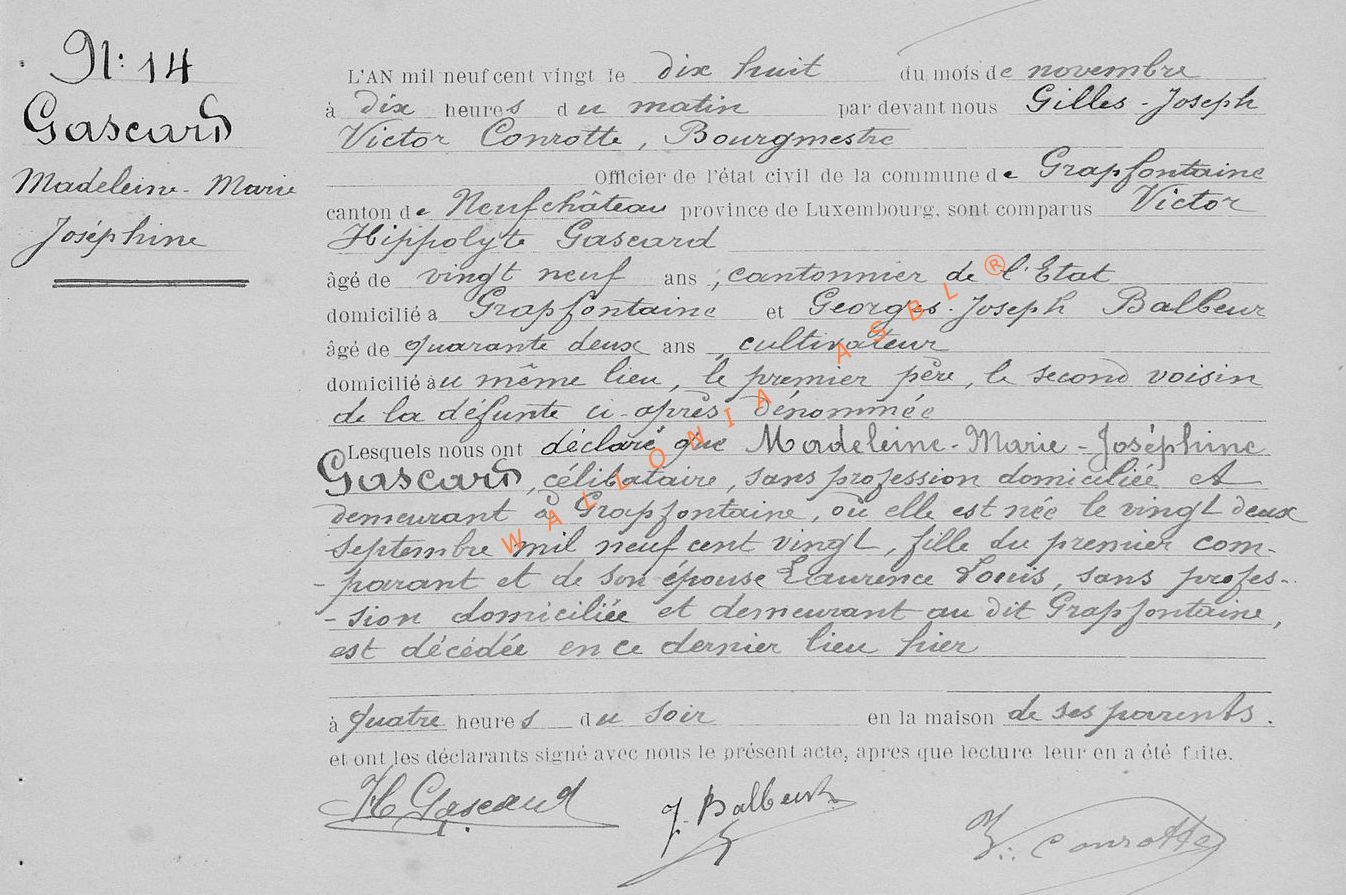 N: 14
Gascard
Madeleine-Marie
Joséphine
L'AN mil neuf cent vingt le dix huit du mois de novembre
à dix heures du matin par devant nous Gilles-Joseph
Victor Conrotte, Bourgmestre
Officier de l'état civil de la commune de Grapfontaine
canton de Neufchâteau province de Luxembourg, sont comparus Victor
Hippolyte Gascard
âgé de vingt neuf ans, cantonnier de l'Etat
domicilié à Grapfontaine et Georges-Joseph Balbeur
âgé de quarante deux ans, cultivateur
domicilié au même lieu, le premier père, le second voisin
de la défunte ci-après dénommée
Lesquels nous ont déclaré que Madeleine-Marie-Joséphine
Gascard, célibataire, sans profession domiciliée et
demeurant à Grapfontaine, où elle est née le vingt deux
septembre mil neuf cent vingt, fille du premier com-
-parant et de son épouse Laurence Louis, sans profes-
-sion domiciliée et demeurant au dit Grapfontaine,
est décédée en ce dernier lieu hier
à quatre heures du soir en la maison de ses parents.
et ont les déclarants signé avec nous le présent acte, après que lecture leur en a été faite.
H Gascard J. Balbeur V. Conrotte
WALLONIA ASBL ®